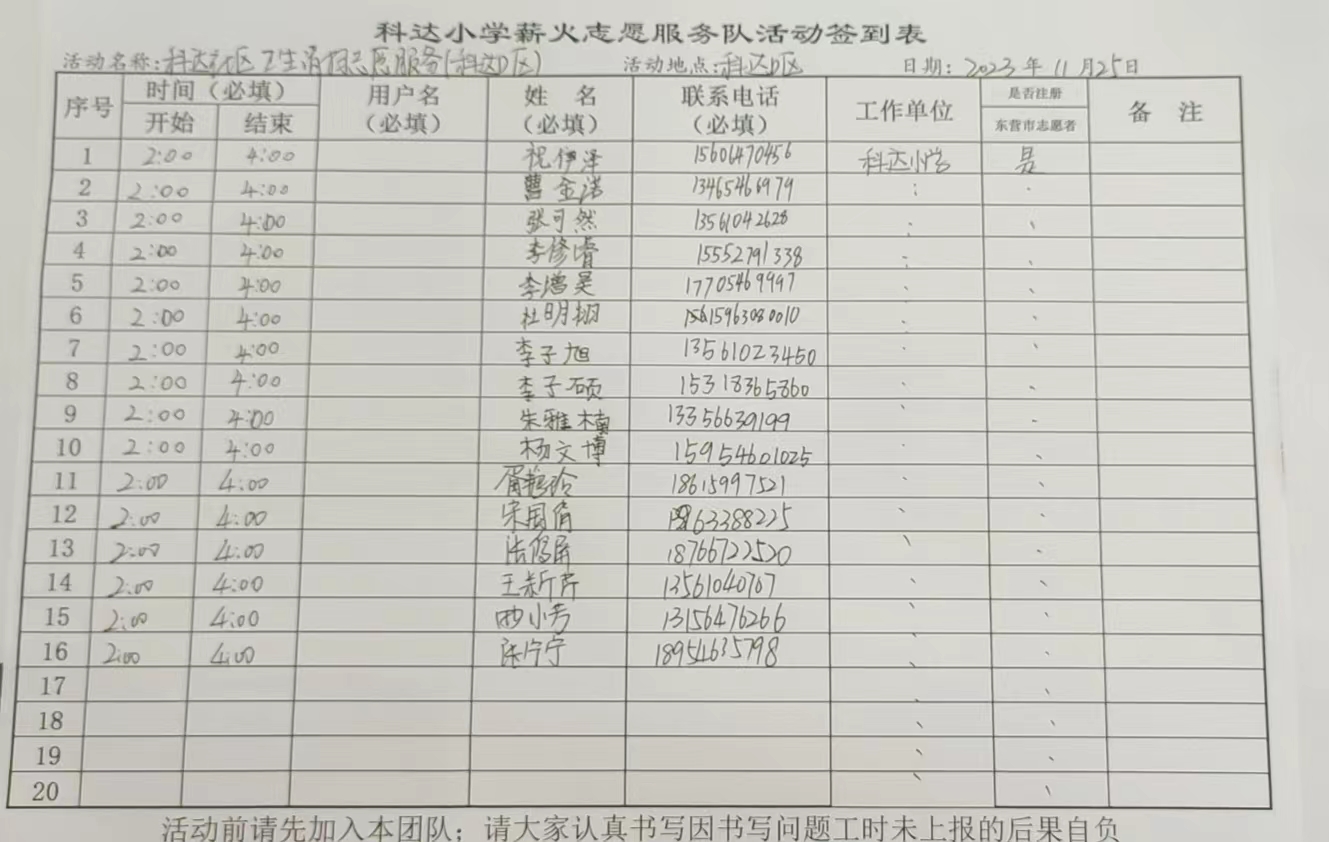 科达小学薪火志愿服务队活动签到表
活动名称:科达社区卫生清扫志愿服务(科达D区) 活动地点:科达D区 日期: 2023 年 11 月 25 日
序号 时间（必填） 用户名（必填） 姓 名（必填） 联系电话（必填） 工作单位 是否注册东营市志愿者 备 注
开始 结束
1 2:00 4:00 祝伊泽 15606470456 科达小学 是
2 2:00 4:00 曹金浩 13465466979
3 2:00 4:00 张可然 13561042628
4 2:00 4:00 李修睿 15552791338
5 2:00 4:00 李增昊 17705469997
6 2:00 4:00 杜明栩
7 2:00 4:00 李子旭 13561023450
8 2:00 4:00 李子硕 15318365860
9 2:00 4:00 朱雅楠 13356639199
10 2:00 4:00 杨文博 15954601025
11 2:00 4:00 18615997521
12 2:00 4:00 宋国倩
13 2:00 4:00 18766722520
14 2:00 4:00 王新芹 13561040767
15 2:00 4:00 小芳 13156476266
16 2:00 4:00 张宁宁 18954635798
17
18
19
20
活动前请先加入本团队；请大家认真书写因书写问题工时未上报的后果自负